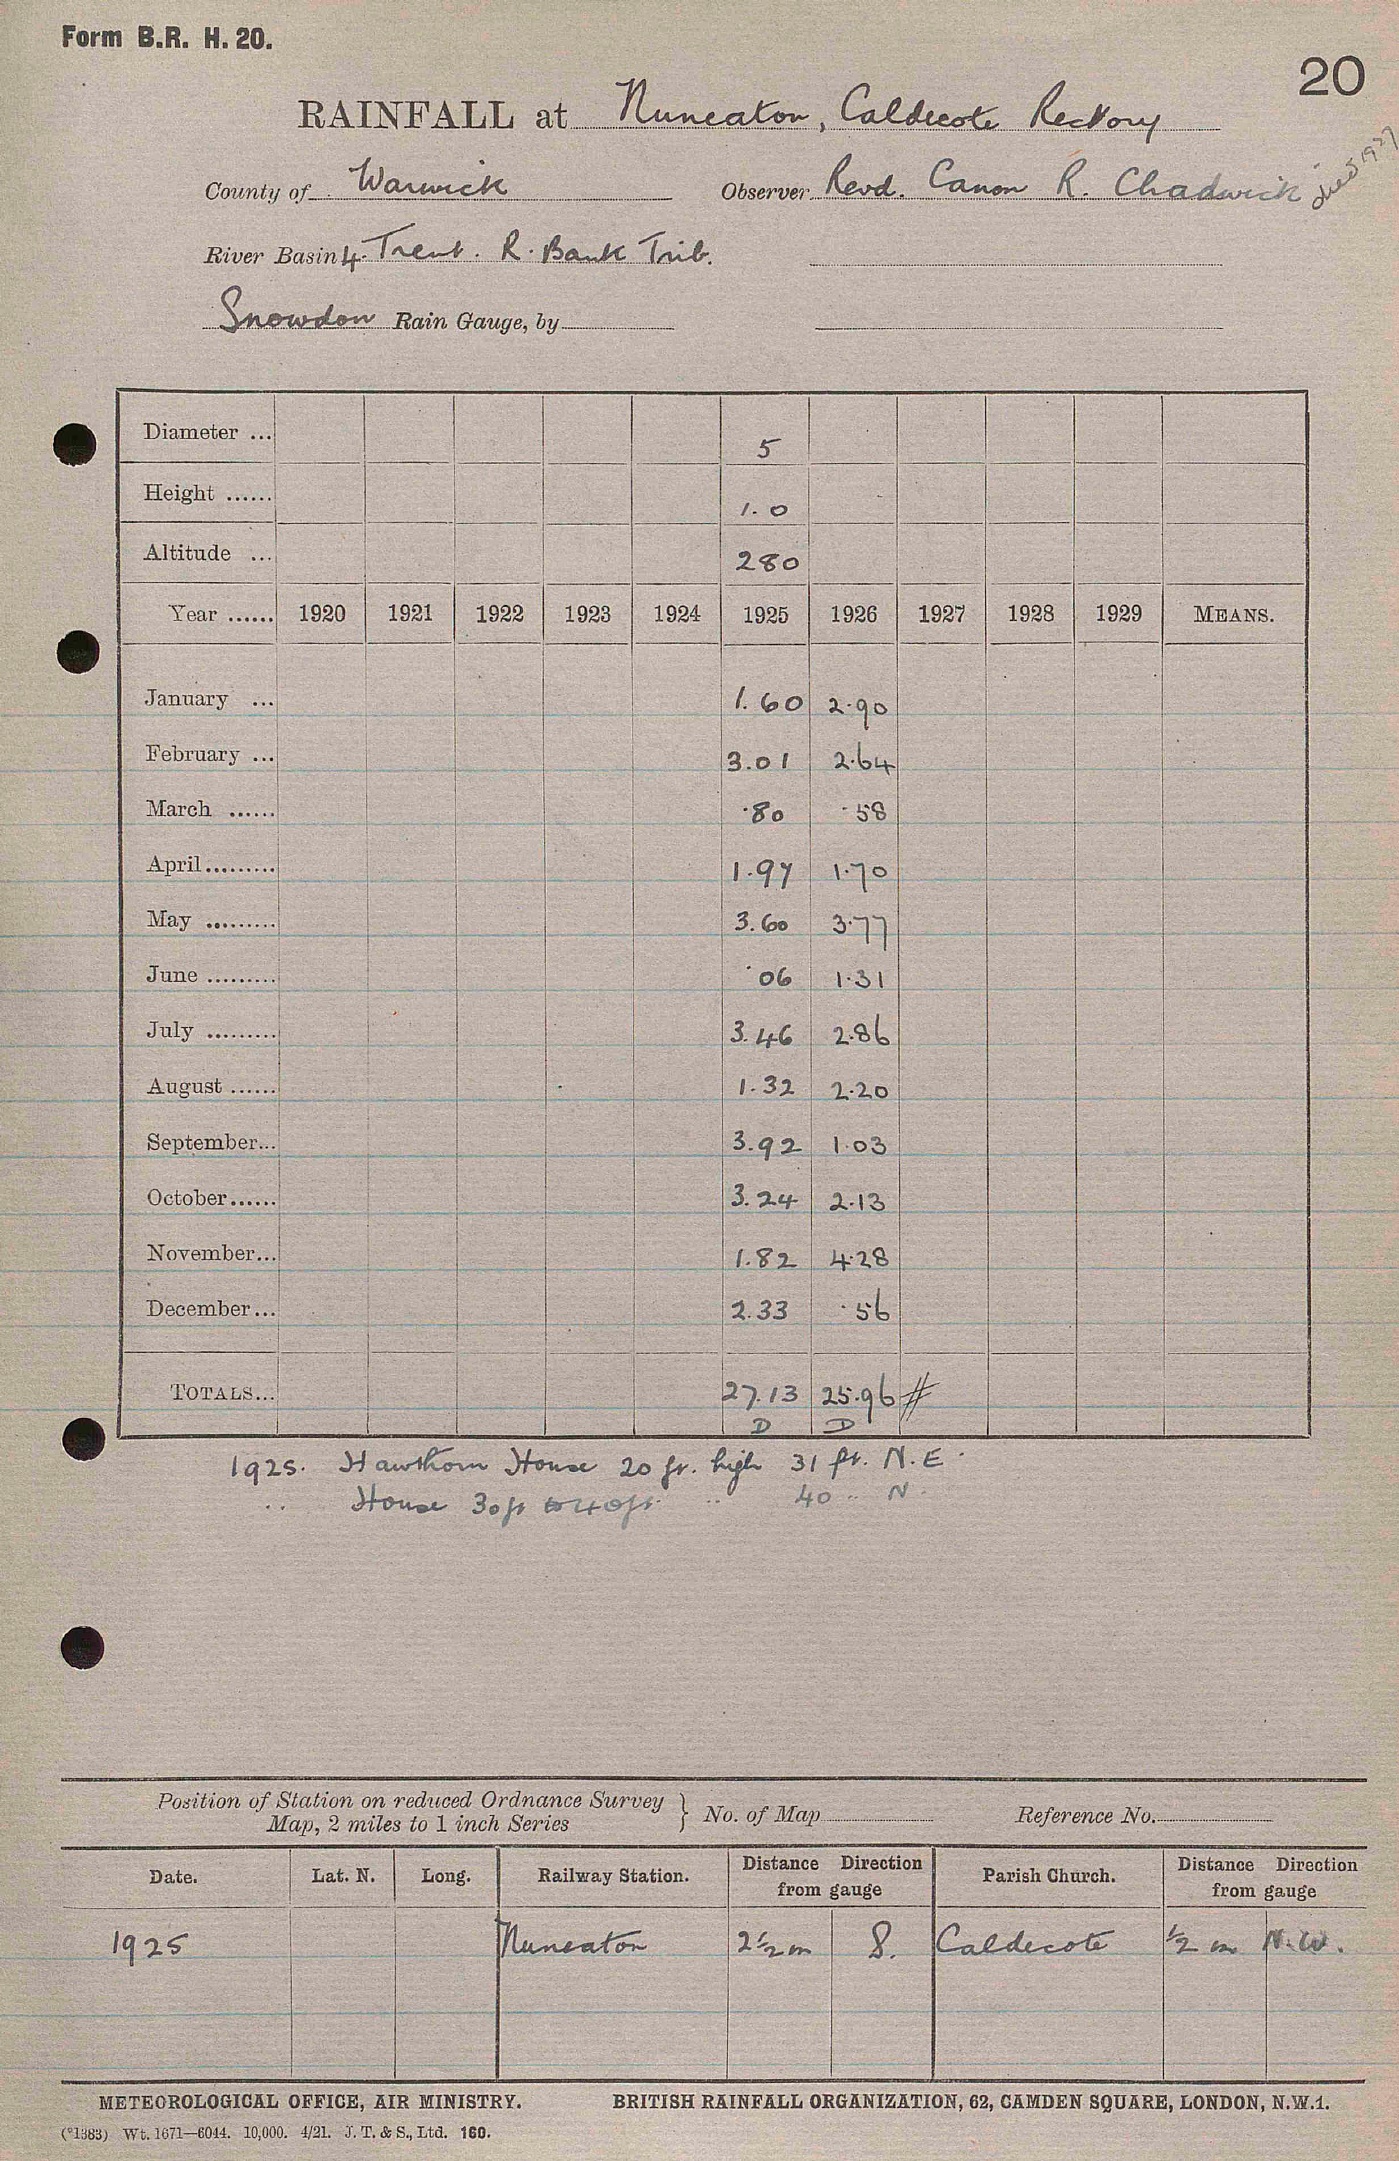 Form B.R. H. 20.
20
RAINFALL at Nuneaton, Caldecote Rectory
County of Warwick Observer Revd. Canon R. Chadwick died 1927
River Basin 4. Trent. R. Bank Trib.
Snowdon Rain Gauge, by
Diameter ... 5
Height ...... 1.0
Altitude ... 280
Year ...... 1920 1921 1922 1923 1924 1925 1926 1927 1928 1929 MEANS.
January ... 1.60 2.90
February ... 3.01 2.64
March ...... .80 .58
April......... 1.97 1.70
May ......... 3.60 3.77
June ......... .06 1.31
July ......... 3.46 2.86
August ...... 1.32 2.20
September... 3.92 1.03
October...... 3.24 2.13
November... 1.82 4.28
December... 2.33 .56
TOTALS... 27.13 25.96 #
D D
1925. Hawthorn House 20 ft. high 31 ft. N.E.
.. House 30ft to 40ft. .. 40 .. N.
Position of Station on reduced Ordnance Survey
Map, 2 miles to 1 inch Series } No. of Map Reference No.
Date. Lat. N. Long. Railway Station. Distance Direction from gauge Parish Church. Distance Direction from gauge
1925 Nuneaton 2½ m S. Caldecote ½ m N.W.
METEOROLOGICAL OFFICE, AIR MINISTRY. BRITISH RAINFALL ORGANIZATION, 62, CAMDEN SQUARE, LONDON, N.W.1.
(*1383) Wt. 1671—6044. 10,000. 4/21. J. T. & S., Ltd. 160.